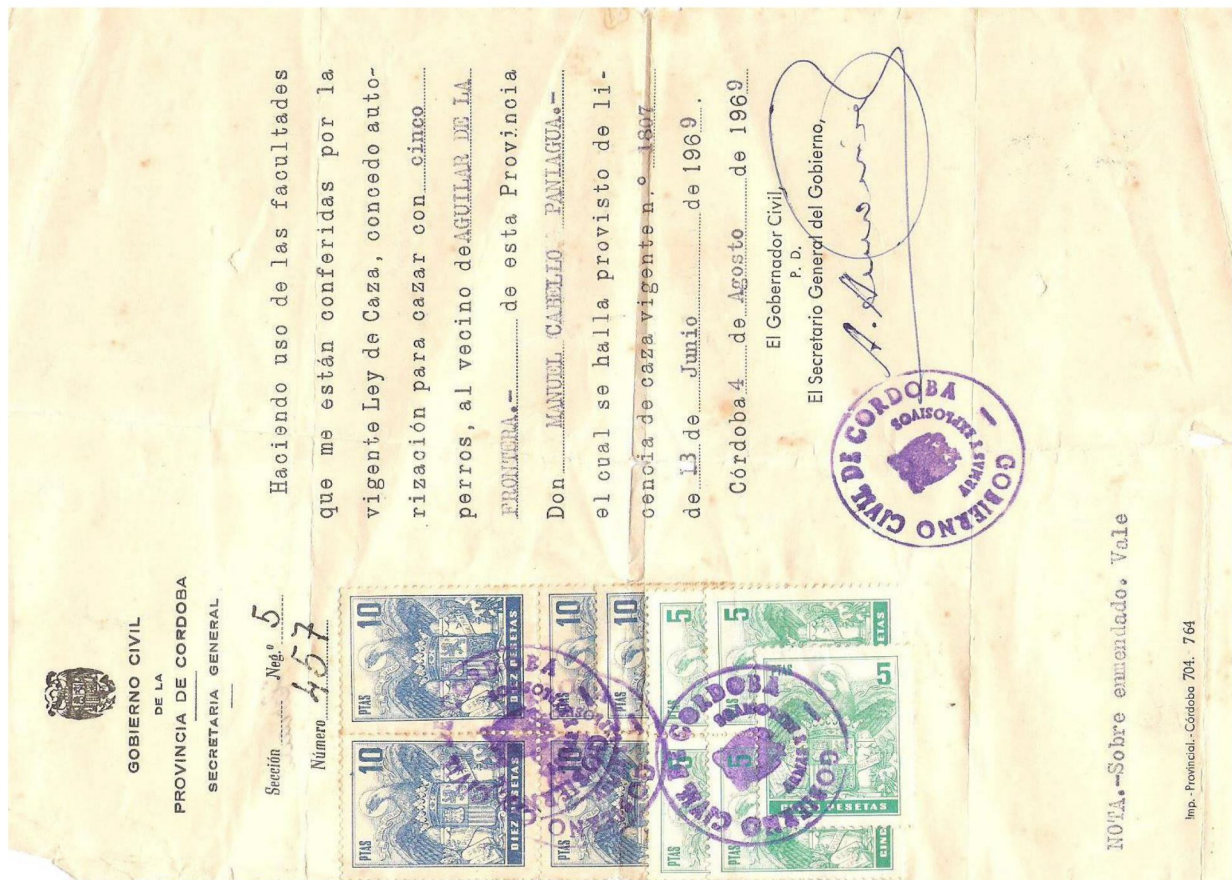 GOBIERNO CIVIL
DE LA
PROVINCIA DE CORDOBA
SECRETARIA GENERAL
Sección Neg.º 5
Número 457
Haciendo uso de las facultades
que me están conferidas por la
vigente Ley de Caza, concedo auto-
rización para cazar con cinco
perros, al vecino de AGUILAR DE LA
FRONTERA.- de esta Provincia
Don MANUEL CABELLO PANIAGUA.-
el cual se halla provisto de li-
cencia de caza vigente n.º 1807
de 13 de Junio de 1969.
Córdoba 4 de Agosto de 1969
El Gobernador Civil,
P. D.
El Secretario General del Gobierno,
GOBIERNO CIVIL DE CORDOBA
ARMAS Y EXPLOSIVOS
PTAS 10
DIEZ PESETAS
PTAS 10
DIEZ PESETAS
10
10
10
PTAS 5
5
PTAS 5
5
PTAS 5
CINCO PESETAS
GOBIERNO CIVIL DE CORDOBA
ARMAS Y EXPLOSIVOS
NOTA.-Sobre enmendado. Vale
Imp.-Provincial.-Córdoba 704. 764